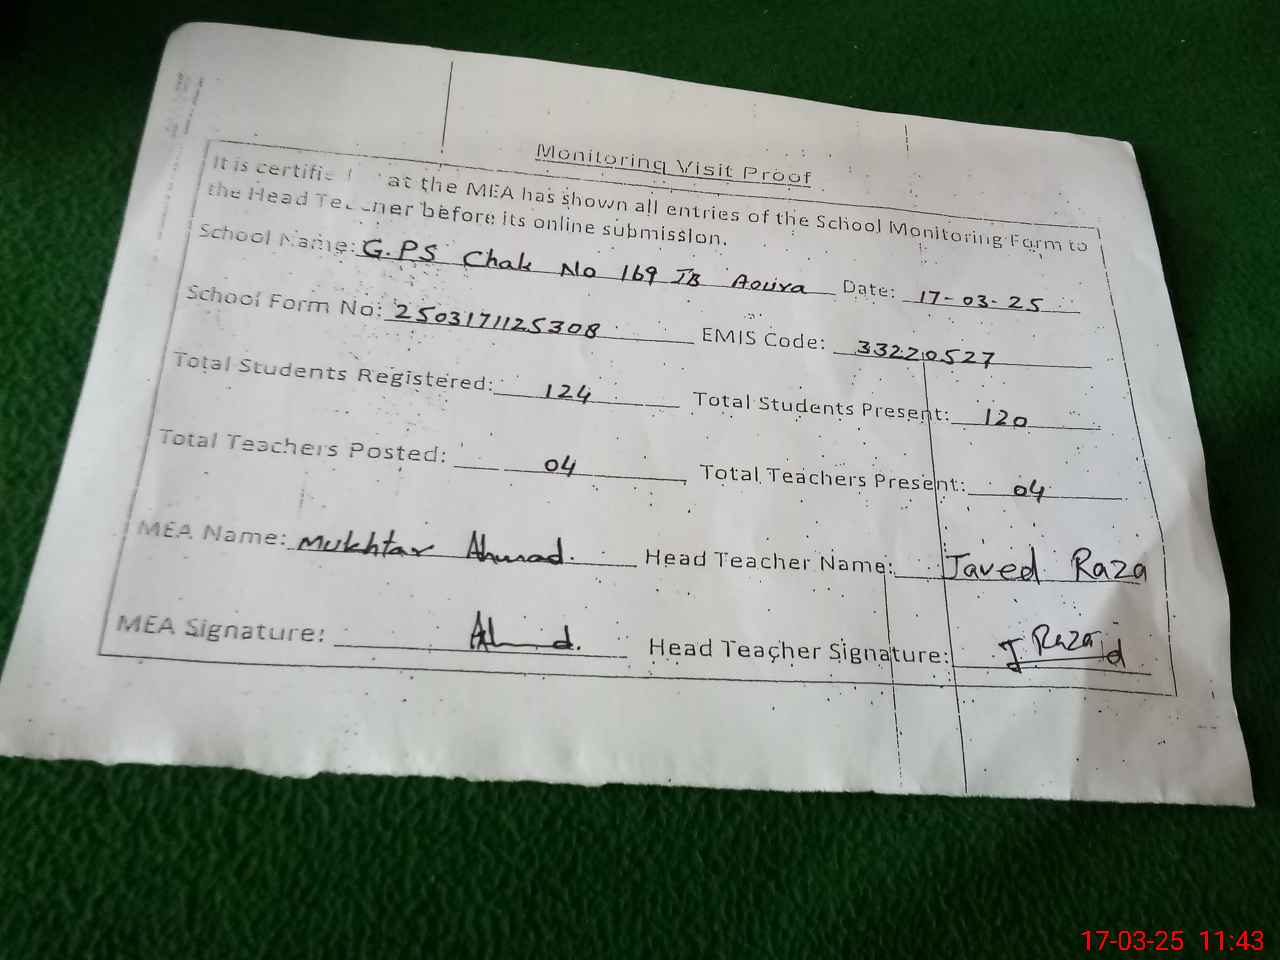 Monitoring Visit Proof
It is certifie at the MEA has shown all entries of the School Monitoring Form to
the Head Teacher before its online submission.
School Name: G.PS Chak No 169 JB Date: 17-03-25
School Form No: 2503171125308 EMIS Code: 33220527
Total Students Registered: 124 Total Students Present: 120
Total Teachers Posted: 04 Total Teachers Present: 04
MEA Name: Mukhtar Ahmad. Head Teacher Name: Javed Raza
MEA Signature: Head Teacher Signature: Raza
17-03-25 11:43